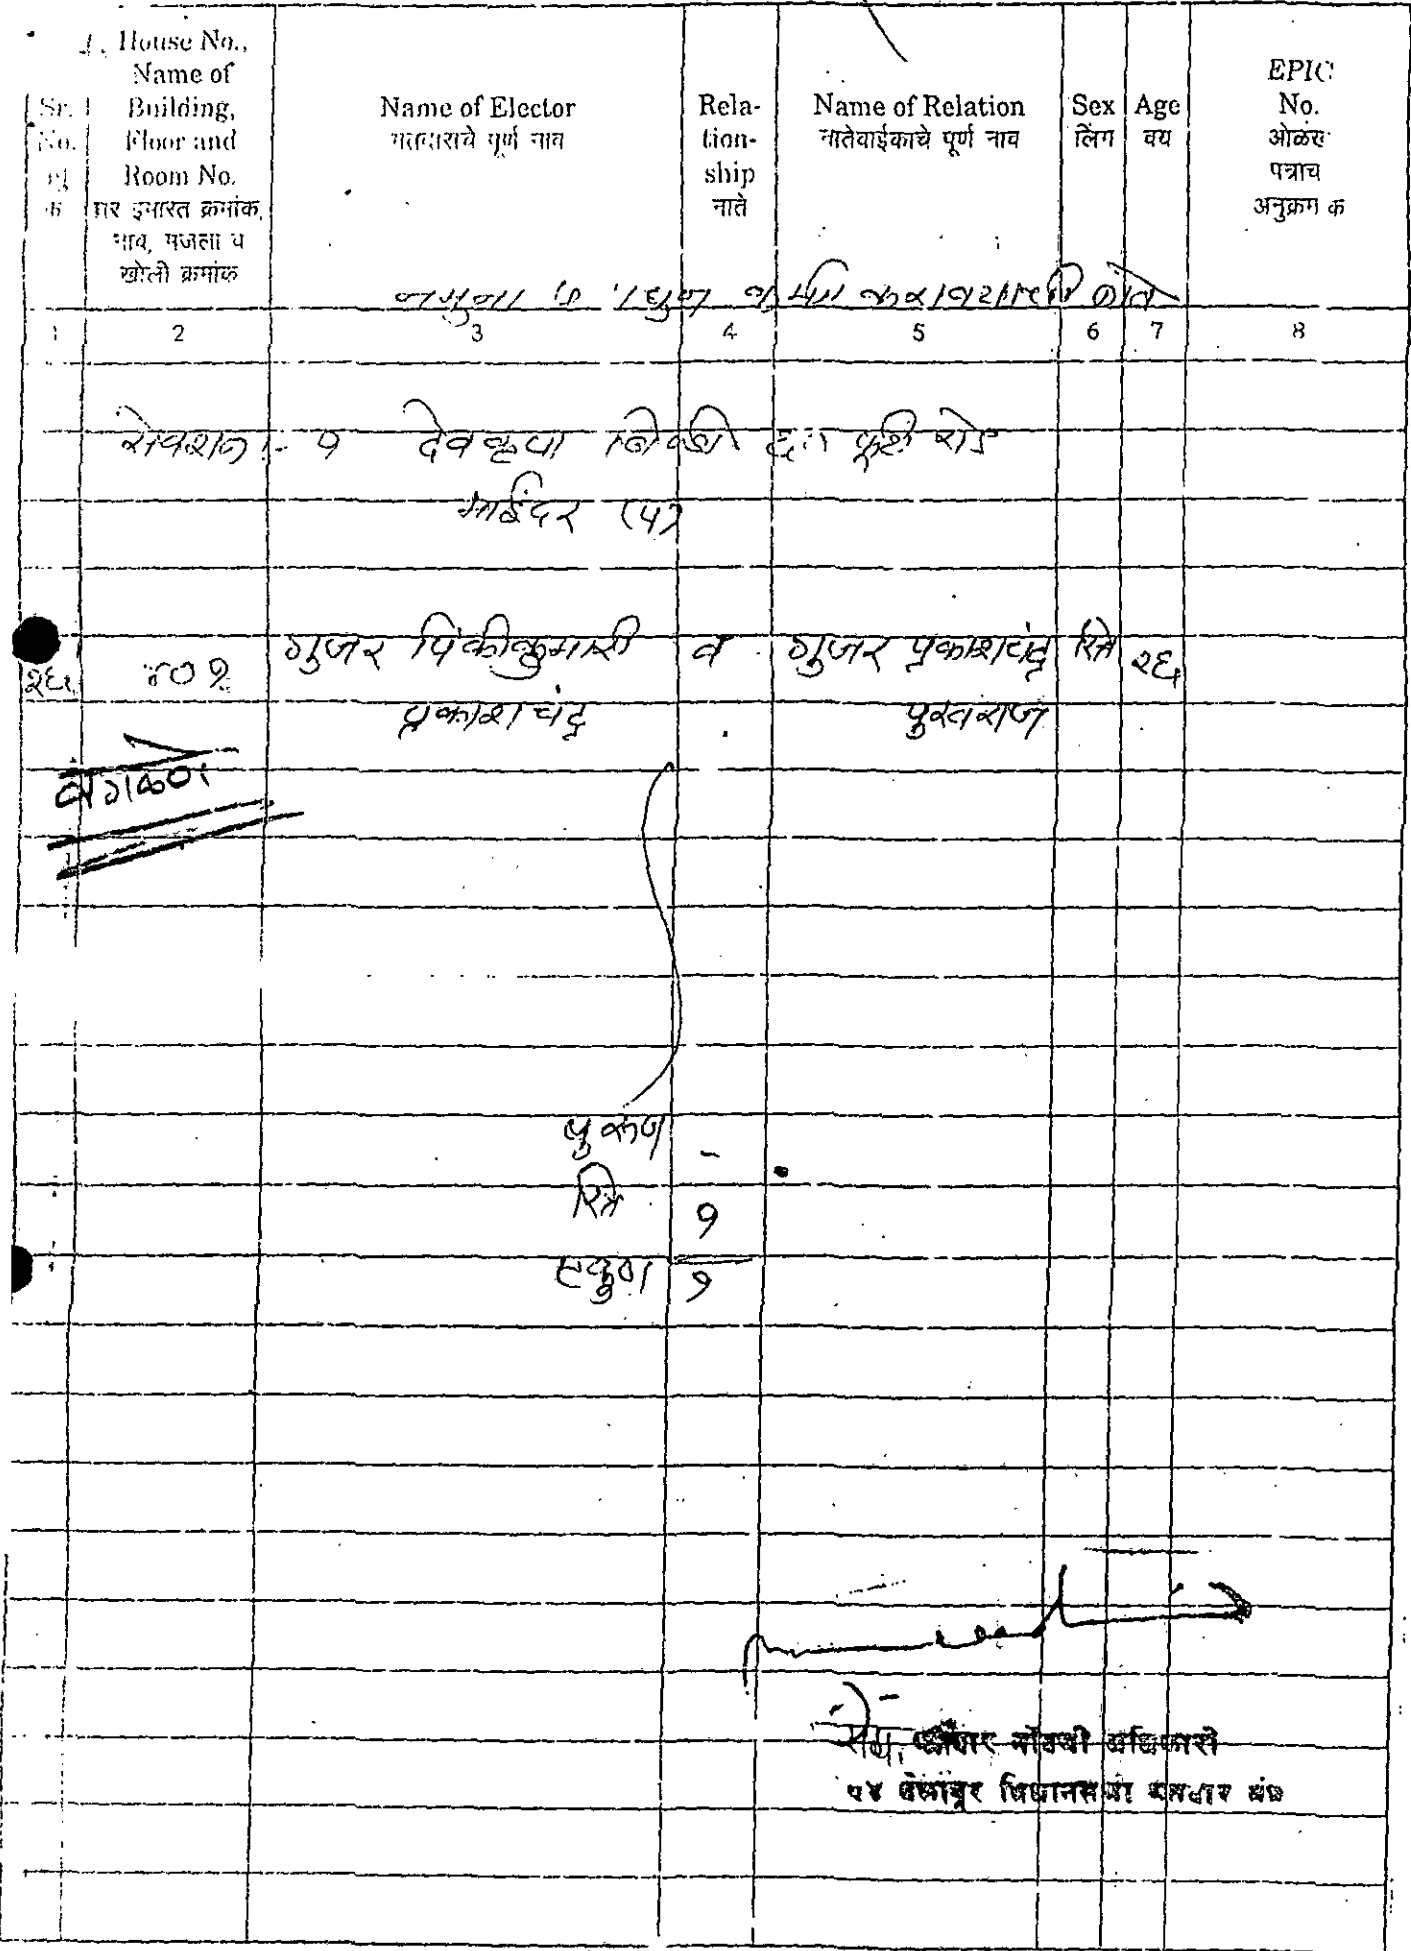 House No.,
Name of
Building,
Floor and
Room No.
घर इमारत क्रमांक,
नाव, मजला व
खोली क्रमांक
Sr.
No.
Name of Elector
मतदाराचे पूर्ण नाव
Rela-
tion-
ship
नाते
Name of Relation
नातेवाईकाचे पूर्ण नाव
Sex
लिंग
Age
वय
EPIC
No.
ओळख
पत्राच
अनुक्रम क
नमुना
1 2 3 4 5 6 7 8
सेक्शन :- १ देवकृपा रोड
भाईंदर (प)
२६ ४०१ गुजर पिंकीकुमारी व गुजर प्रकाशचंद्र स्त्रि २६
प्रकाशचंद्र पुखराज
वगळणे
पुरुष -
स्त्रि १
एकुण १
मतदार नोंदणी अधिकारी
विधानसभा मतदार संघ